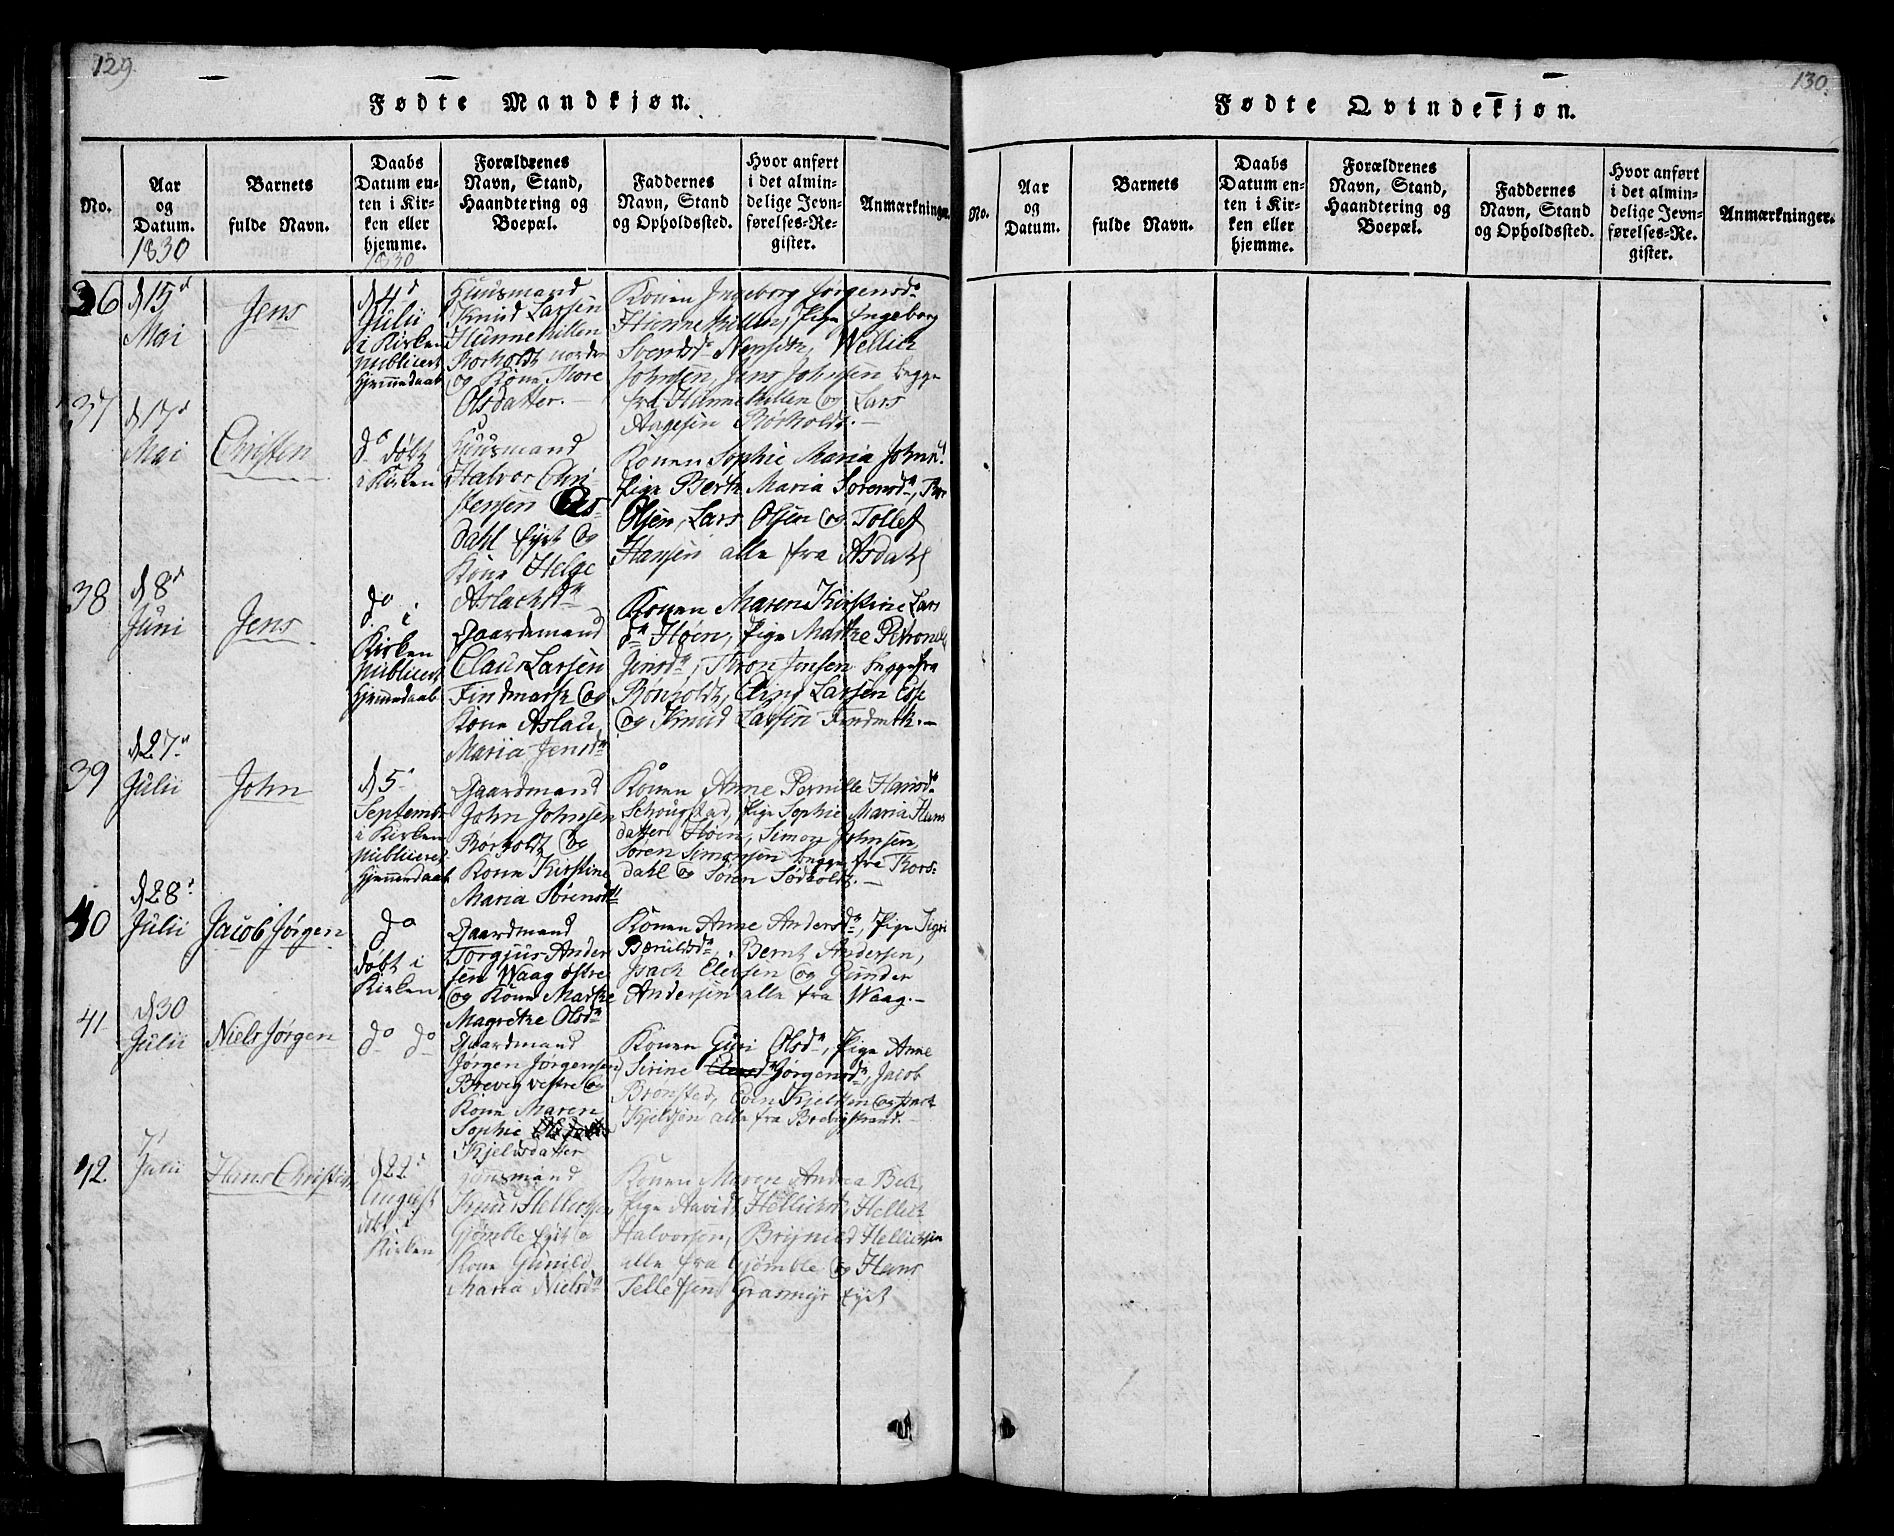 129.
Fødte Mandkjøn.
No.
Aar og Datum.
1830
Barnets fulde Navn.
Daabs Datum enten i Kirken eller hjemme.
1830
Forældrenes Navn, Stand, Haandtering og Boepæl.
Faddernes Navn, Stand og Opholdssted.
Hvor anført i det almindelige Jevnførelses-Register.
Anmærkninger.
36
d. 15d
Mai
Jens
d. 4d
Julii
i Kirken
publiceret
hjemmedaab
Huusmand
Knud Larsen
Hunnekillen
Borholdt nordre
og Kone Thore
Olsdatter.
Konen Ingeborg Jörgensdr
Hunnekillen, Pige Ingeborg
Svendsdr Nenseth, Wellich
Johnsen, Jens Johnsen begge
fra Hunnekillen og Lars
Aagesen Børholdt.
37
d. 17d
Mai
Christen
do døbt
i Kirken
Huusmand
Halvor Chri-
stensen Aas-
dahl Eyet og
Kone Helge
Aslachsdr
Konen Sophie Maria Johnsdr
Pige Berth Maria Sörensdr,
Olsen, Lars Olsen og Tollef
Hansen alle fra Asdahl
38
d. 8d
Juni
Jens
do i
Kirken
publiceret
hjemmedaab
Gaardmand
Claus Larsen
Findmark og
Kone Aslau
Maria Jensdr
Konen Maren Kirstine Lars
dr Høen, Pige Marthe Petronelle
Jensdr, Thron Jensen begge fra
Børholdt, Eling Larsen
og Knud Larsen Findmrk.
39
d. 27d
Julii
John
d. 5
Septembr
i Kirken
publiceret
hjemmedaab
Gaardmand
John Johnsen
Børholdt og
Kone Kirstine
Maria Sørensdr
Konen Anne Pernille Hansdr
Schougstad, Pige Sophie Maria Hans
datter Høen, Simon Johnsen,
Søren Simonsen begge fra Thors-
dahl og Søren Sødholdt.
40
d. 28d
Julii
Jacob Jørgen
do
døbt i
Kirken
Gaardmand
Torgjus Ander
sen Waag østre
og Kone Marthe
Magrethe Olsdr
Konen Anne Andersdr, Pige Sigri
Bærulsdr, Bernt Andersen,
Isach Elevsen og Gunder
Andersen alle fra Waag.
41
d. 30
Julii
Niels Jørgen
do do
Gaardmand
Jørgen Jørgensen
Brevig vestre og
Kone Maren
Sophie
Kjeldsdatter
Konen Guri Olsdr, Pige Anne
Sirine Jørgensdr, Jacob
Brønsted, Even Kjeldsen og Isach
Kjeldsen alle fra Brevigstrand.
42.
Julii
Hans Christian
d. 22d
August
døbt i
Kirken
Huusmand
Knud Hellichsen
Gjømble Eyet og
Kone Gunild
Maria Nielsdr
Konen Maren Andrea Bek,
Pige Hellichsdr, Hellich
Halvorsen, Brynild Hellichsen
alle fra Gjømble og Hans
Tellefsen Grasmyr Eyet
130.
Fødte Qvindekjøn.
No.
Aar og Datum.
Barnets fulde Navn.
Daabs Datum enten i Kirken eller hjemme.
Forældrenes Navn, Stand, Haandtering og Boepæl.
Faddernes Navn, Stand og Opholdssted.
Hvor anført i det almindelige Jevnførelses-Register.
Anmærkninger.